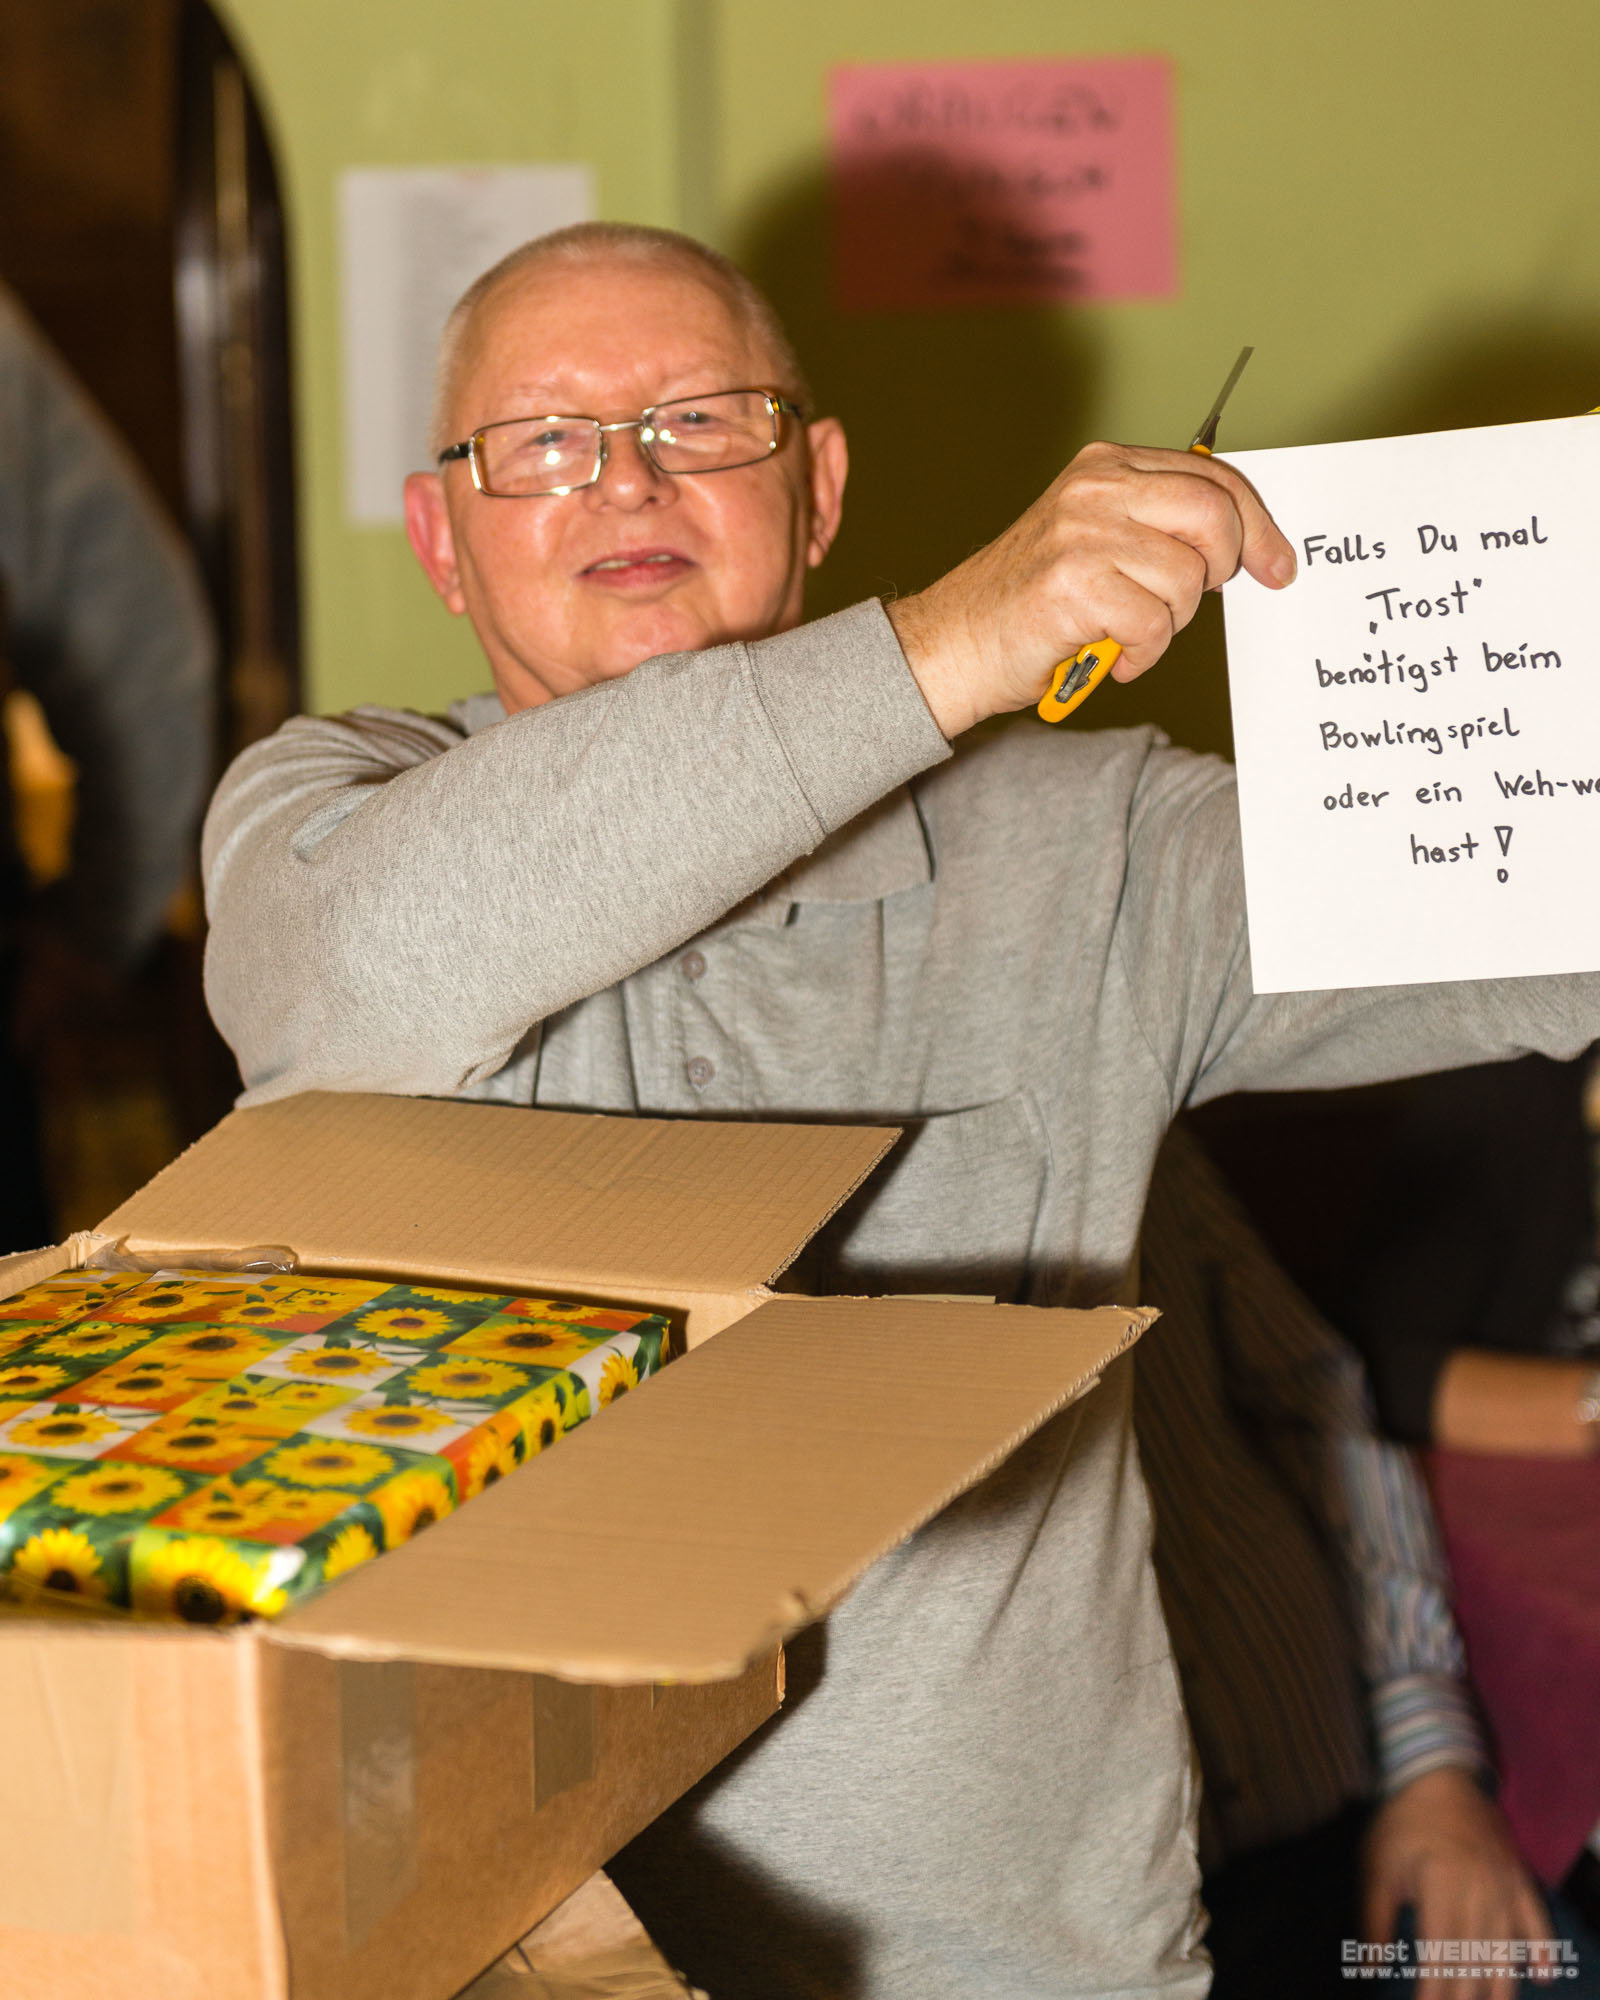 Falls Du mal
„Trost"
benötigst beim
Bowlingspiel
oder ein Weh-we
hast!
Ernst WEINZETTL
WWW.WEINZETTL.INFO